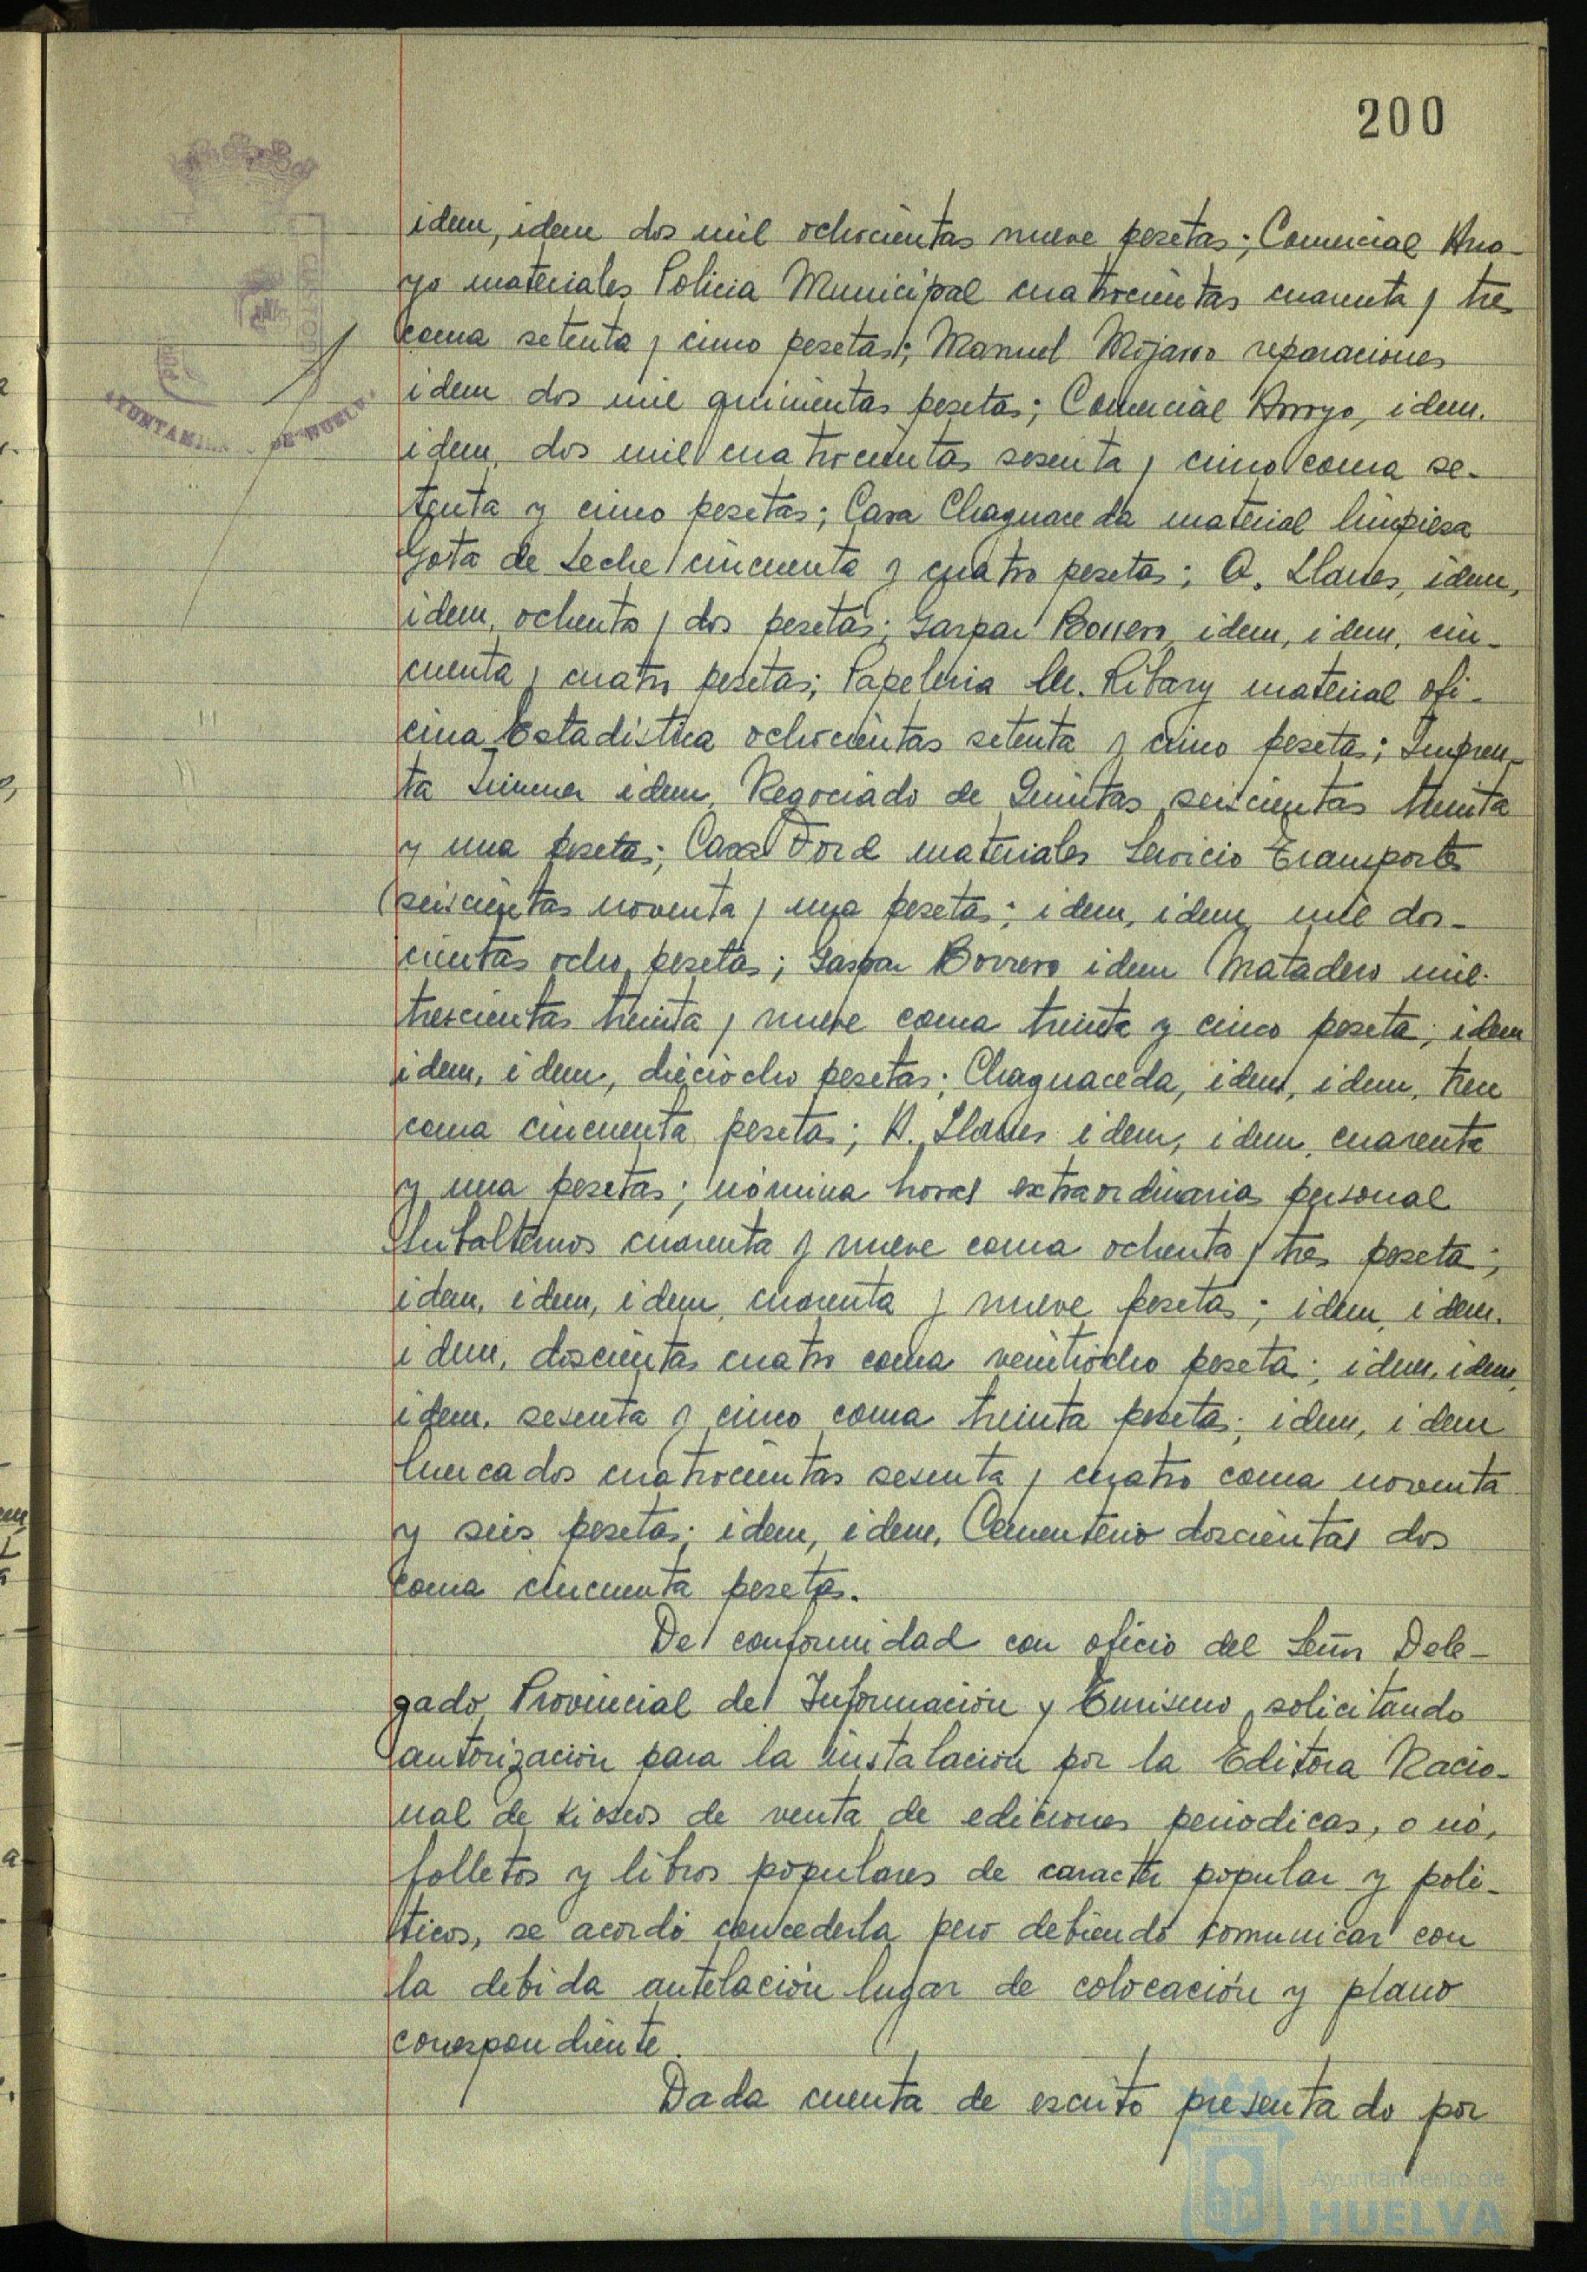 200
idem, idem dos mil ochocientas nueve pesetas; Comercial Arro-
yo materiales Policia Municipal cuatrocientas cuarenta y tres
coma setenta y cinco pesetas; Manuel Mojarro reparaciones
idem dos mil quinientas pesetas; Comercial Arroyo, idem.
idem, dos mil cuatrocientas sesenta y cinco coma se-
tenta y cinco pesetas; Casa Chaguaceda material limpieza
Gota de Leche cincuenta y cuatro pesetas; A. Llanes, idem,
idem, ochenta y dos pesetas; Gaspar Borrero, idem, idem, cin-
cuenta y cuatro pesetas; Papeleria M. Ritary material ofi-
cina Estadistica ochocientas setenta y cinco pesetas; Impren-
ta Jimenez idem, Negociado de Quintas seiscientas treinta
y una pesetas; Casa Ford materiales Servicio Transportes
seiscientas noventa y una pesetas; idem, idem, mil dos-
cientas ocho pesetas; Gaspar Borrero idem Matadero mil
trescientas treinta y nueve coma treinta y cinco peseta; idem
idem, idem, dieciocho pesetas; Chaguaceda, idem, idem, trece
coma cincuenta pesetas; A. Llanes idem, idem, cuarenta
y una pesetas; nómina horas extraordinarias personal
Subalternos cuarenta y nueve coma ochenta y tres peseta;
idem, idem, idem, cuarenta y nueve pesetas; idem, idem.
idem, doscientas cuatro coma veintiocho pesetas; idem, idem,
idem, sesenta y cinco coma treinta pesetas; idem, idem
Mercados cuatrocientas sesenta y cuatro coma noventa
y seis pesetas; idem, idem, Cementerio doscientas dos
coma cincuenta pesetas.
De conformidad con oficio del Señor Dele-
gado Provincial de Información y Turismo, solicitando
autorización para la instalación por la Editora Nacio-
nal de kioskos de venta de ediciones periodicas, o nó,
folletos y libros populares de caracter popular y poli-
ticos, se acordó concederla pero debiendo comunicar con
la debida antelación lugar de colocación y plano
correspondiente.
Dada cuenta de escrito presentado por
AYUNTAMIEN DE HUELVA
Ayuntamiento de
HUELVA